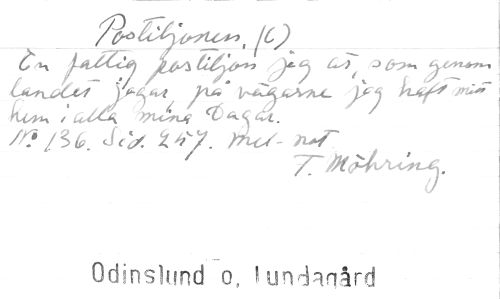 Postiljonen. (C)
En fattig postiljon jag är, som genom
landet jagar, på vägarne jag haft mitt
hem i alla mina Dagar.
No 136. Sid. 247. Mel- not
T. Möhring.
Odinslund o, Lundagård